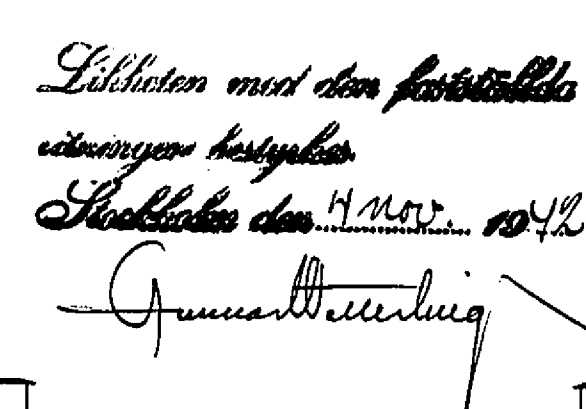 Likheten med den fastställda
ritningen bestyrkes.
Stockholm den 4 Nov. 1942
Gunnar Wetterling